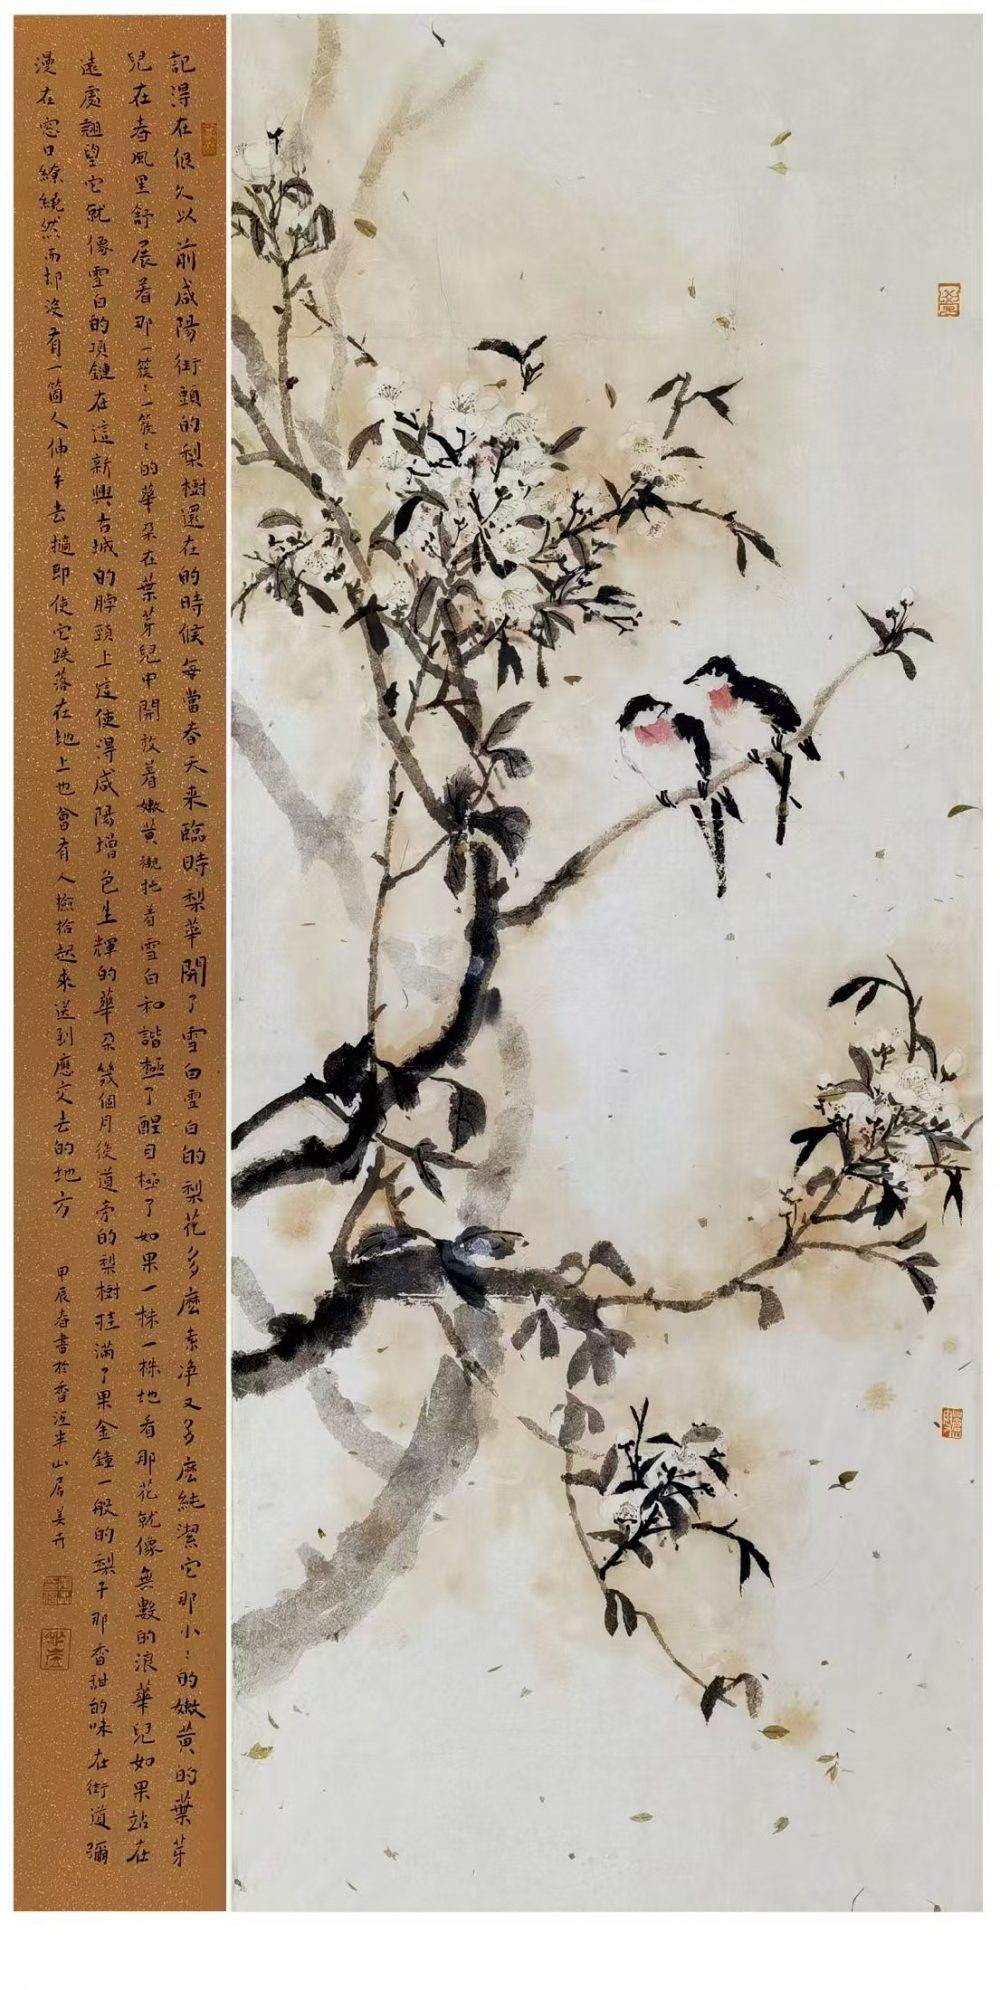 記得在很久以前咸陽街頭的梨樹還在的時候每當春天来臨時梨華開了雪白雪白的梨花多麼素净又多麼純潔它那小〻的嫩黄的葉芽
兒在春風里舒展着那一簇〻一簇〻的華朵在葉芽兒中開放着嫩黄襯托着雪白和諧極了醒目極了如果一株一株地看那花就像無數的浪華兒如果站在
遠處翹望它就像雪白的項鏈在這新興古城的脖頸上這使得咸陽增色生輝的華朵幾個月後道旁的梨樹挂滿了果金鐘一般的梨子那香甜的味在街道彌
漫在窓口繚繞然而却沒有一箇人伸手去摘即使它跌落在地上也會有人撿拾起來送到應交去的地方
甲辰春書於香江半山居美卉